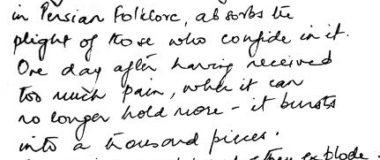 in Persian folklore, absorbs the
plight of those who confide in it.
One day after having received
too much pain, when it can
no longer hold more - it bursts
into a thousand pieces.
then explode.